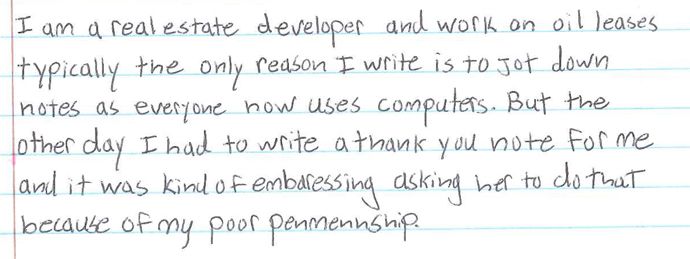 I am a real estate developer and work on oil leases
typically the only reason I write is to jot down
notes as everyone now uses computers. But the
other day I had to write a thank you note for me
and it was kind of embaressing asking her to do that
because of my poor penmennship.